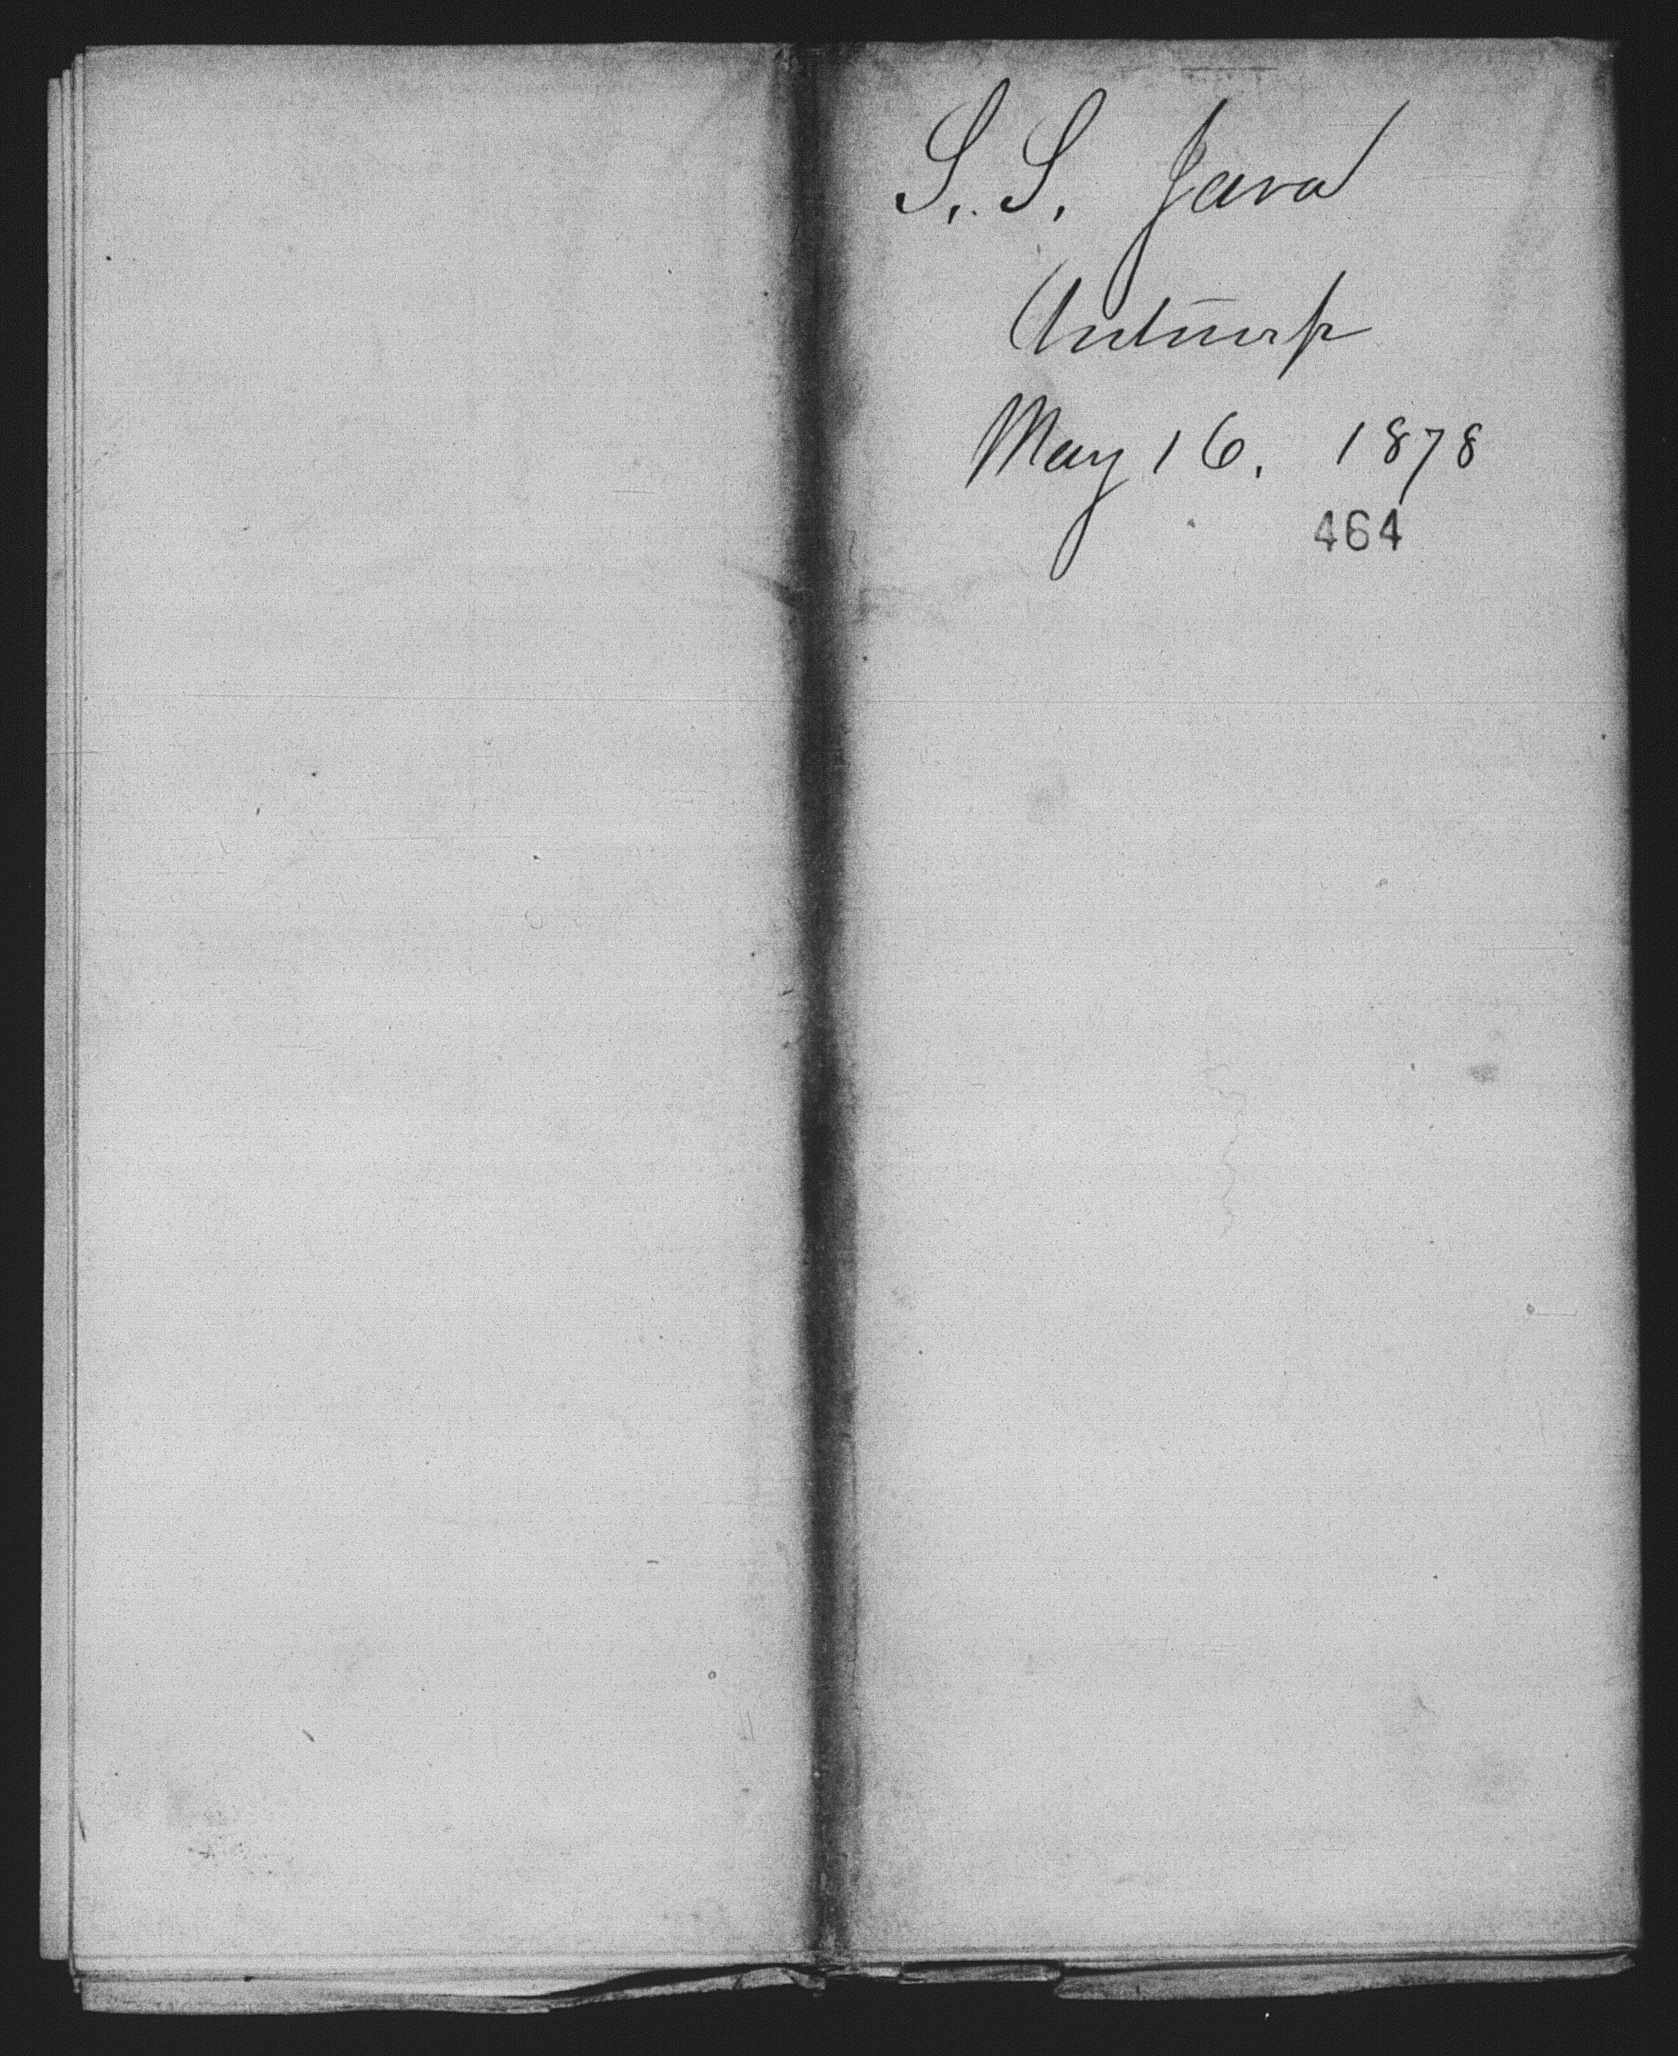 S. S. Java
Antwerp
May 16. 1878
464